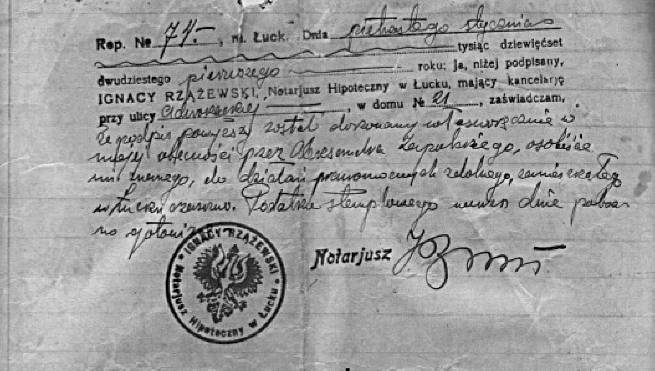 Rep. № 74.—, m. Łuck. Dnia piętnastego stycznia
tysiąc dziewięćset
dwudziestego pierwszego roku; ja, niżej podpisany,
IGNACY RZĄŻEWSKI, Notarjusz Hipoteczny w Łucku, mający kancelarję
przy ulicy , w domu № 21, zaświadczam,
że podpis powyższy został dokonany własnoręcznie w
mojej obecności przez Aleksandra , osobiście
mi znanego, do działań prawomocnych zdolnego, zamieszkałego
w Łucku czasowo. Podatku stemplowego dnia pobra-
no gotówką
Notarjusz
IGNACY RZĄŻEWSKI
Notarjusz Hipoteczny w Łucku